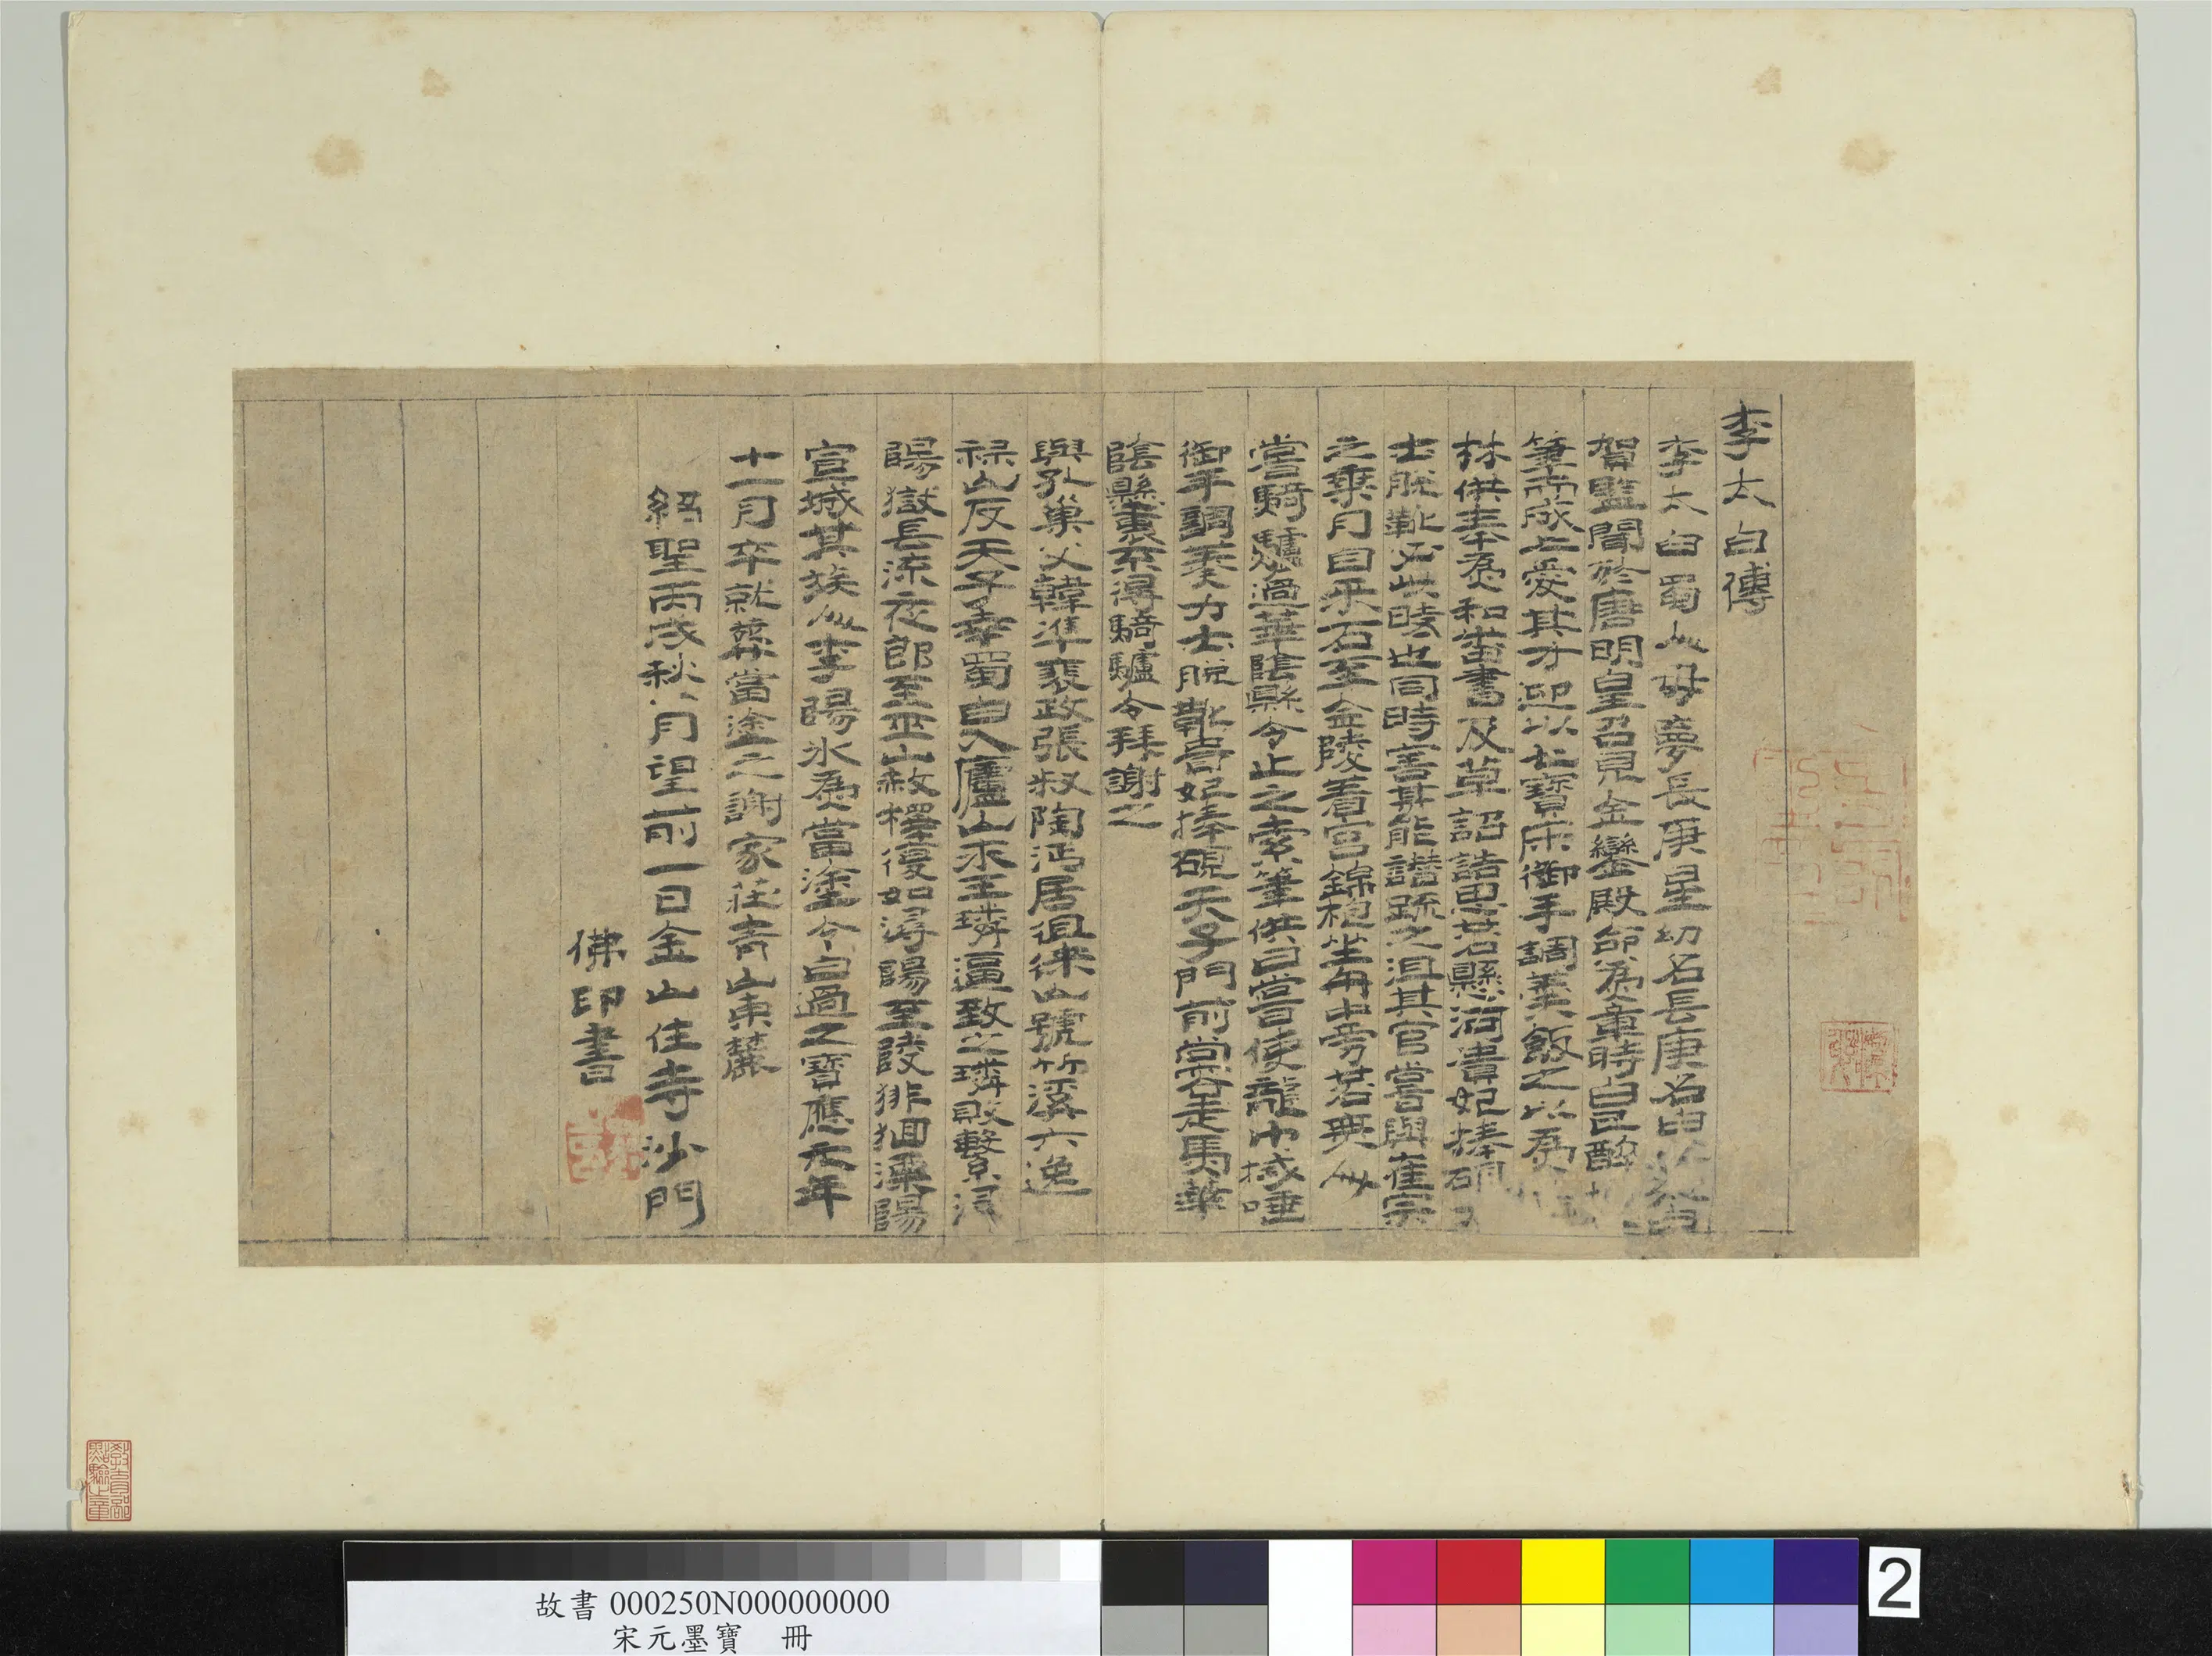 李太白傳
李太白蜀人母夢長庚星幼名長庚名白
賀監聞於唐明皇召見金鑾殿命為章時白已醉
筆而成上愛其才迎以七寶床御手調羹飯之以為
林供奉為和蕃書及草詔誥思若懸河貴妃捧硯
士脫靴於此時也同時害其能譖疏之沮其官嘗與崔宗
之乘月自采石至金陵着宮錦袍坐舟中旁若無人
嘗騎驢過華陰縣令止之索筆供曰嘗使龍巾拭唾
御手調羹力士脫靴貴妃捧硯天子門前常容走馬華
陰縣裏不得騎驢令拜謝之
與孔巢父韓準裴政張叔陶沔居徂徠山號竹溪六逸
祿山反天子幸蜀白入廬山永王璘逼致之璘敗繫潯
陽獄長流夜郎至巫山赦擇復如潯陽至陵徘徊溧陽
宣城其族人李陽冰為當塗令白過之寶應元年
十一月卒就葬當塗之謝家莊青山東麓
紹聖丙戌秋八月望前一日金山住寺沙門
佛印書
教育部
點驗之章
故書 000250N000000000
宋元墨寶 冊
2